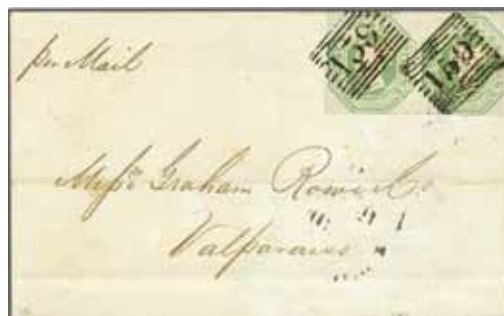 per Mail
159
Messrs Graham Rowe & Co
Valparaiso